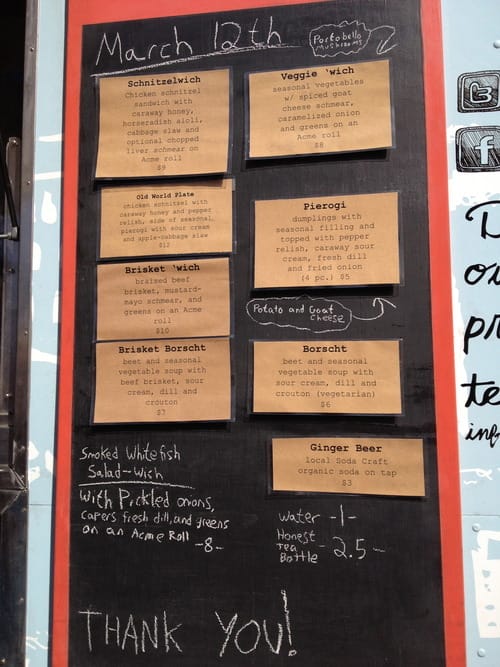 March 12th
Portobello
Mushrooms
Schnitzelwich
Chicken schnitzel
sandwich with
caraway honey,
horseradish aioli,
cabbage slaw and
optional chopped
liver schmear on
Acme roll
$9
Veggie 'wich
seasonal vegetables
w/ spiced goat
cheese schmear,
caramelized onion
and greens on an
Acme roll
$8
Old World Plate
chicken schnitzel with
caraway honey and pepper
relish, side of seasonal
pierogi with sour cream
and apple-cabbage slaw
$12
Pierogi
dumplings with
seasonal filling and
topped with pepper
relish, caraway sour
cream, fresh dill
and fried onion
(4 pc.) $5
Potato and Goat
Cheese
Brisket 'wich
braised beef
brisket, mustard-
mayo schmear, and
greens on an Acme
roll
$10
Brisket Borscht
beet and seasonal
vegetable soup with
beef brisket, sour
cream, dill and
crouton
$7
Borscht
beet and seasonal
vegetable soup with
sour cream, dill and
crouton (vegetarian)
$6
Ginger Beer
local Soda Craft
organic soda on tap
$3
Smoked Whitefish
Salad-Wich
With Pickled onions,
capers fresh dill, and greens
on an Acme Roll
-8-
Water -1-
Honest
Tea
Bottle - 2.5 -
THANK YOU!
f